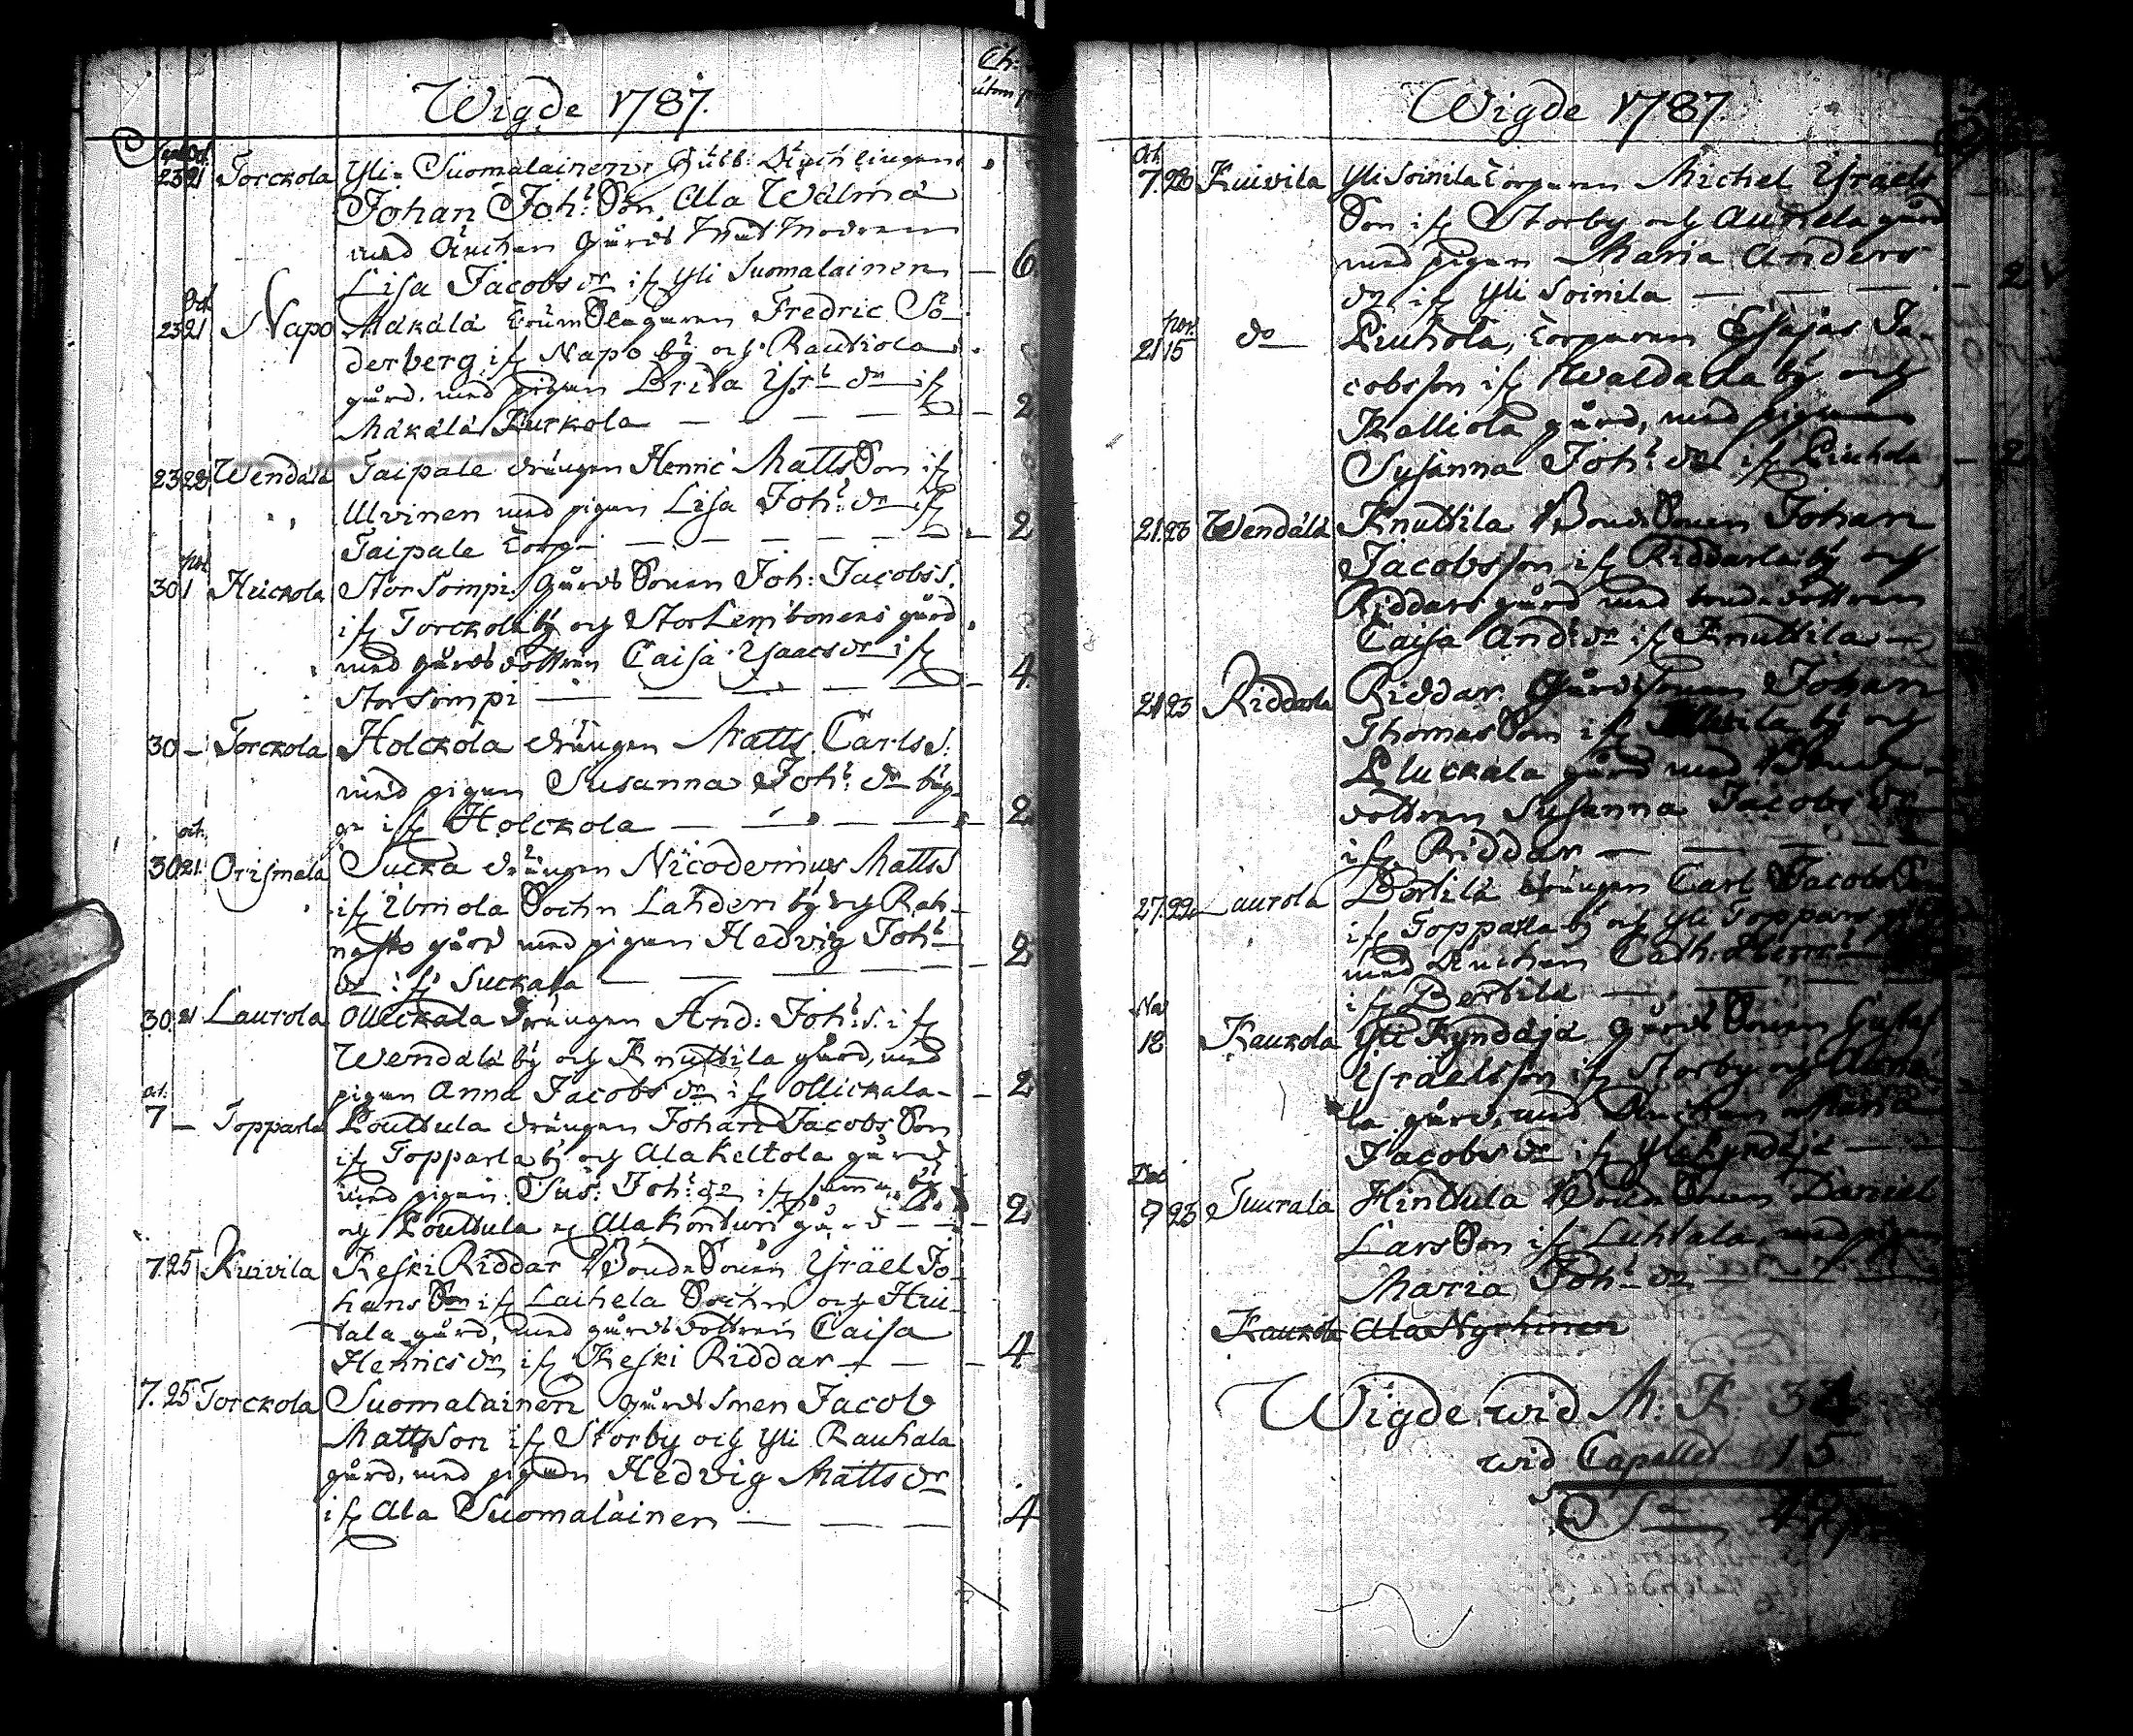 Wigde 1787.
Ch:
utom
Sept Oct
23 21 Torckola Yli-Suomalainen Gubb:
Johan Joh: Son Ala Walma
med Änckan Gårds Mat Modren
Lisa Jacobs dr ifr Yli Suomalainen — 6.
Oct
23 21 Napo Mäkälä TrumSlagaren Fredric Sö-
derberg ifr Napo bÿ och Rautiola
gård, med pigan Brita Isr: dr ifr
Mäkälä Kurkola — — — 2
23 28 Wendälä Taipale drängen Henric MattsSon ifr
Ulvinen med pigan Lisa Joh: dr ifr
Taipale Torp — — — 2
Nov
30 1 Heickola StorSompi GårdsSonen Joh: Jacobs S.
ifr Torckola bÿ och StorLemitonens gård
med gårdsdottren Caisa Ysaacs dr ifr
StorSompi — — — 4
30 — Torckola Holckola drängen Matts Carls S.
med pigan Susanna Joh: dr bäg-
ge ifr Holckola — — — 2
oct.
30 21. Orismala Sucka drängen Nicodemus Matts S
ifr Ilmola Sochn Lahden bÿ och Rah-
nasto gård med pigan Hedvig Joh:
dr ifr Suckala — — — 2
30. 21 Laurola Ollickala Drängen And: Joh: S. ifr
Wendälä bÿ och Knuttila gård, med
pigan Anna Jacobs dr ifr Ollickala — 2
oct:
7 — Topparla Pouttula drängen Johan JacobsSon
ifr Topparla bÿ och AlaKeltola gård
med pigan Sus: Joh: dr ifr samma bÿ
och Pouttula Ala Konturi gård — 2
7. 25 Kuivila Keski Riddar BondeSonen Ysräel Jo-
hansSon ifr Laihela Sochn och Hui-
tala gård, med gårdsdottren Caisa
Henrics dr ifr Keski Riddar — — 4
7. 25 Torckola Suomalainen gårdsSonen Jacob
MattsSon ifr Storby och Yli Rauhala
gård, med pigan Hedvig Matts dr
ifr Ala Suomalainen — — — 4
Wigde 1787
Oct
7. 28 Kuivila Yli Soinila Torparen Michel Ysraels
Son ifr Storby och gård
med pigan Maria Anders
dr ifr Yli Soinila — — — 2
nov.
21 15 do Liuhola, Torparen Esaias Ja-
cobsson ifr Waldalla bÿ och
Kalliola gård, med pigan
Susanna Joh: dr ifr Liuhola — 2
21. 23 Wendälä Knuttila BondeSonen Johan
Jacobsson ifr Riddarla bÿ och
Riddars gård med bondedottren
Caisa And: dr ifr Knuttila —
21 23 Riddarla Riddar Gårdssonen Johan
ThomasSon ifr bÿ och
Kluckala gård med Bonde-
dottren Susanna Jacobs dr
ifr Riddar — — —
27. 22. Laurola Bertilä drängen Carl JacobsSon
ifr Topparla bÿ och Yli Toppars gård
med Änckan Cath:
ifr Bertilä — — —
Nov
18 Kaukola Yli Kyndäjä gårdsSonen Gustaf
Ysraelsson ifr Storby och
la gård, med Änckan Maria
Jacobs dr ifr Yli Kyndäjä —
Dec
9 23 Tuurala Hinttula BondeSonen Daniel
LarsSon ifr Luhtala, med pigan
Maria Joh: dr — — —
Kaukola Ala Nyrhinen
Wigde wid M: K.
wid Capellet 15
Sa